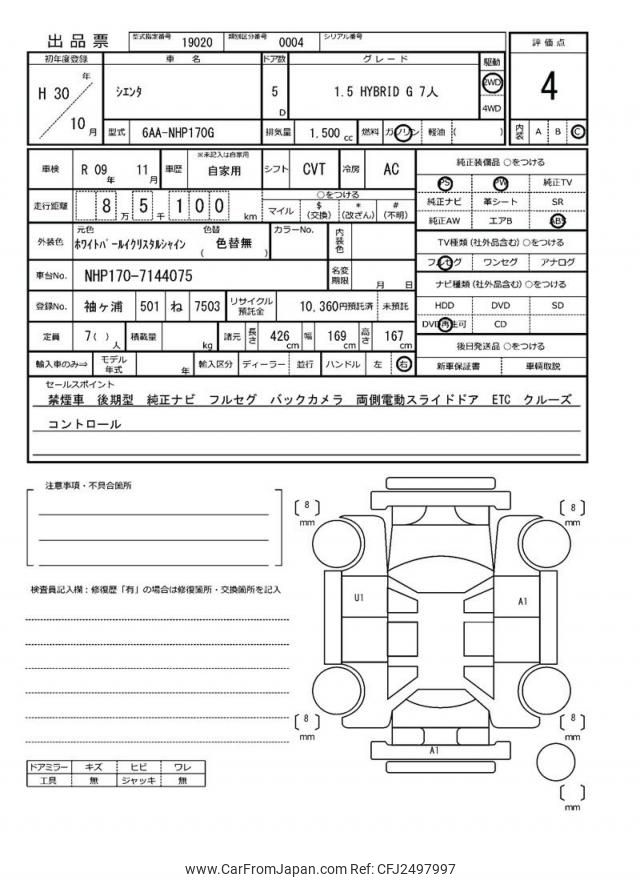 出品票 型式指定番号 19020 類別区分番号 0004 シリアル番号
初年度登録 車 名 ドア数 グレード 駆動 評価点
H 30 年 10 月 シエンタ 5 D 1.5 HYBRID G 7人 2WD 4WD 4
型式 6AA-NHP170G 排気量 1,500 cc 燃料 ガソリン 軽油 ( ) 内装 A B C
車検 R 09 年 11 月 車歴 ※未記入は自家用 自家用 シフト CVT 冷房 AC
走行距離 8 万 5 千 1 0 0 km ○をつける マイル $ (交換) * (改ざん) # (不明)
外装色 元色 ホワイトパールイクリスタルシャイン 色替 ( 色替無 ) カラーNo. 内装色
車台No. NHP170-7144075 名変期限 月 日
登録No. 袖ヶ浦 501 ね 7503 リサイクル預託金 10,360円預託済 未預託
定員 7( ) 人 積載量 kg 諸元 長さ 426 cm 幅 169 cm 高さ 167 cm
輸入車のみ⇒ モデル年式 年 輸入区分 ディーラー 並行 ハンドル 左 右
純正装備品 ○をつける
PS PW 純正TV
純正ナビ 革シート SR
純正AW エアB ABS
TV種類 (社外品含む) ○をつける
フルセグ ワンセグ アナログ
ナビ種類 (社外品含む) ○をつける
HDD DVD SD
DVD再生可 CD
後日発送品 ○をつける
新車保証書 車輌取説
セールスポイント
禁煙車 後期型 純正ナビ フルセグ バックカメラ 両側電動スライドドア ETC クルーズ
コントロール
注意事項・不具合箇所
検査員記入欄:修復歴「有」の場合は修復箇所・交換箇所を記入
ドアミラー キズ ヒビ ワレ
工具 無 ジャッキ 無
[ 8 ] mm [ 8 ] mm
U1 A1
[ 8 ] mm [ 8 ] mm
A1
[ ] mm
www.CarFromJapan.com Ref: CFJ2497997